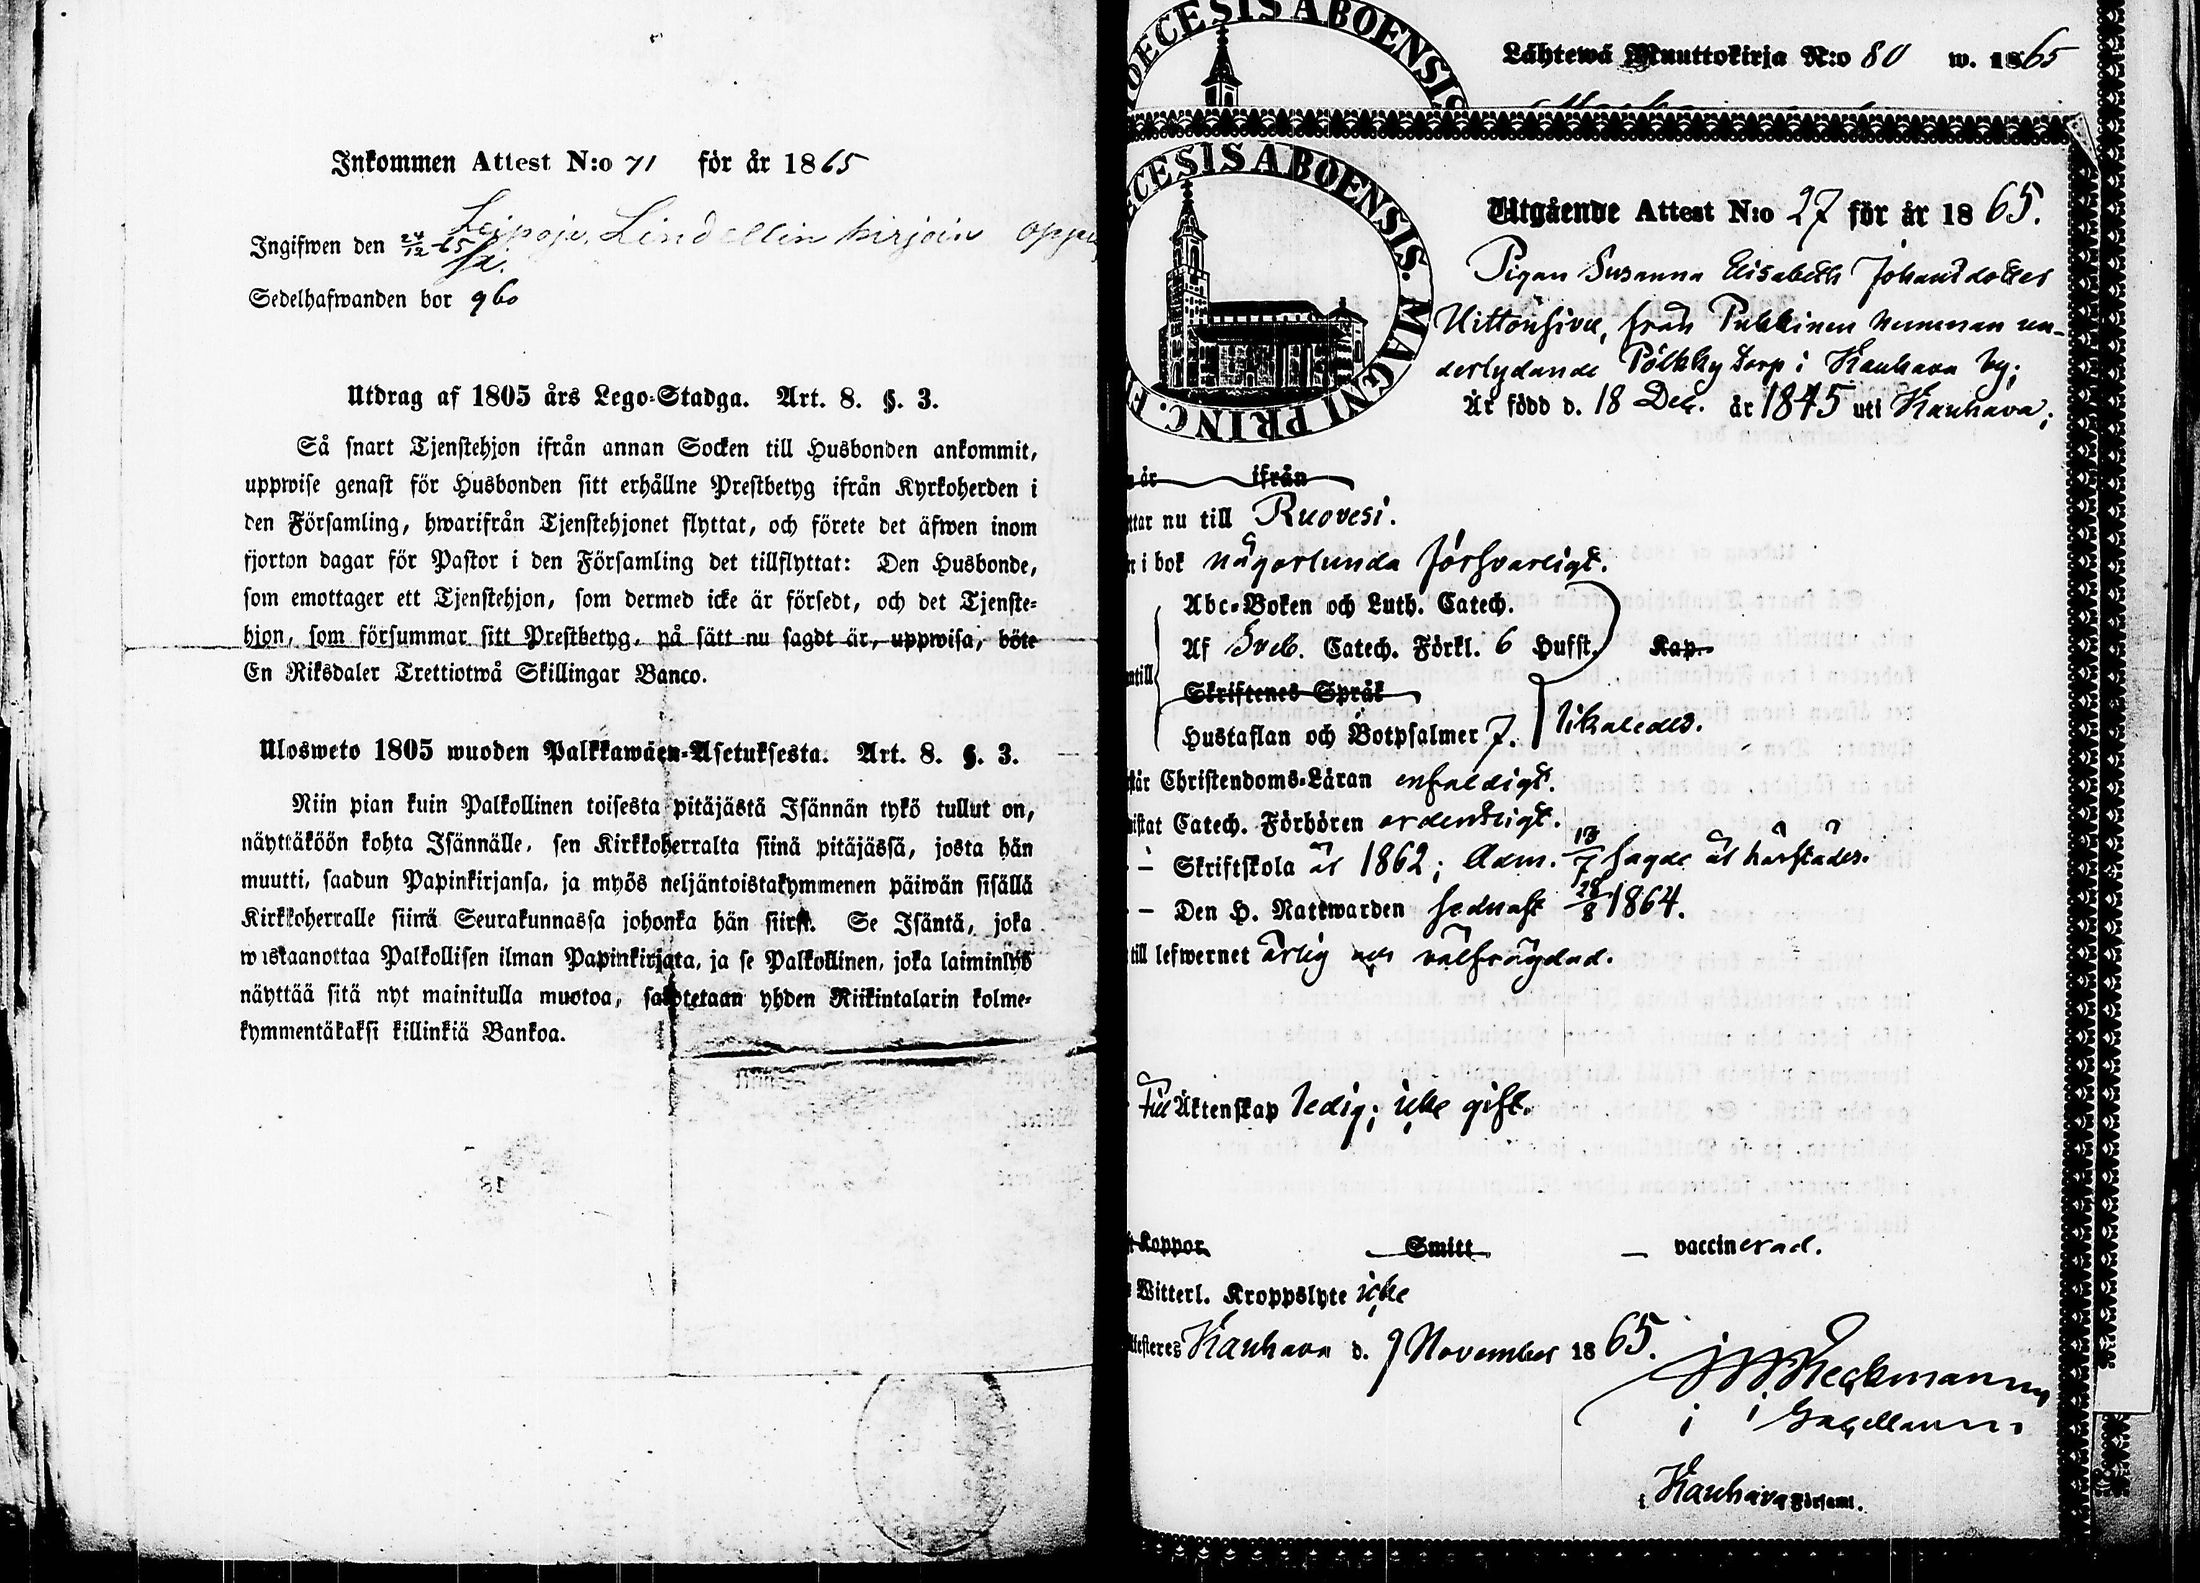 Inkommen Attest N:o 71 för år 1865
Ingifwen den 24/12 65
Lindellin kirjoin
Sedelhafwanden bor 960
Utdrag af 1805 års Lego-Stadga. Art. 8. §. 3.
Så snart Tjenstehjon ifrån annan Socken till Husbonden ankommit,
uppwise genast för Husbonden sitt erhållne Prestbetyg ifrån Kyrkoherden i
den Församling, hwarifrån Tjenstehjonet flyttat, och förete det äfwen inom
fjorton dagar för Pastor i den Församling det tillflyttat: Den Husbonde,
som emottager ett Tjenstehjon, som dermed icke är försedt, och det Tjenste-
hjon, som försummar sitt Prestbetyg, på sätt nu sagdt är, uppwisa, böte
En Riksdaler Trettiotwå Skillingar Banco.
Ulosweto 1805 wuoden Palkkawäen-Asetuksesta. Art. 8. §. 3.
Niin pian kuin Palkollinen toisesta pitäjästä Isännän tykö tullut on,
näyttäköön kohta Isännälle, sen Kirkkoherralta siinä pitäjässä, josta hän
muutti, saadun Papinkirjansa, ja myös neljäntoistakymmenen päiwän sisällä
Kirkkoherralle siinä Seurakunnassa johonka hän siirst. Se Isäntä, joka
wastaanottaa Palkollisen ilman Papinkirjata, ja se Palkollinen, joka laiminlyö
näyttää sitä nyt mainitulla muotoa, sakotetaan yhden Riikintalarin kolme-
kymmentäkaksi killinkiä Bankoa.
DIOECESIS ABOENSIS
Lähtewä Muuttokirja N:o 80 w. 1865
ECESIS ABOENSIS. MAGNI PRINC. F
Utgående Attest N:o 27 för år 1865.
Pigan Susanna Elisabeth Johansdotter
Uittonsivu, från Pukkinen hemman un-
derlydande Pölkky torp i Kauhava by;
Är född d. 18 Dec. år 1845 uti Kauhava;
är ifrån
ttar nu till Ruovesi.
n i bok någorlunda försvarligt.
Abc-Boken och Luth. Catech.
Af Sveb. Catech. Förkl. 6 Hufst. Kap.
ntill Skriftenes Språk
Hustaflan och Botpsalmer 7. likaledes.
står Christendoms-Läran enfaldigt.
istat Catech. Förhören ordentligt.
– Skriftskola år 1862; Adm. 13/7 sagde år härstädes.
– Den H. Nattwarden sednast 28/8 1864.
till lefwernet ärlig och välfrägdad.
Till Äktenskap ledig; icke gift.
Koppor Smitt — vaccinerad.
Witterl. Kroppslyte icke
ttesteres Kauhava d. 9 November 1865.
i Kauhava Församl.